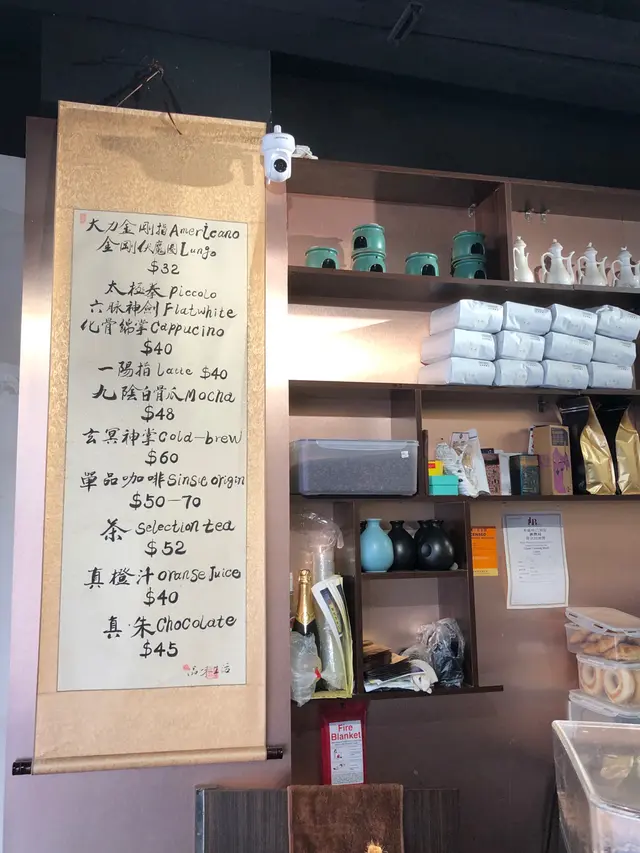 大力金剛指Americano
金剛伏魔圈Lungo
$32
太極拳 Piccolo
六脉神劍Flatwhite
化骨綿掌Cappucino
$40
一陽指Latte $40
九陰白骨爪Mocha
$48
玄冥神掌Cold-brew
$60
單品咖啡Sinsle origin
$50-70
茶 selection tea
$52
真橙汁oranse Juice
$40
真·朱Chocolate
$45
Fire
Blanket